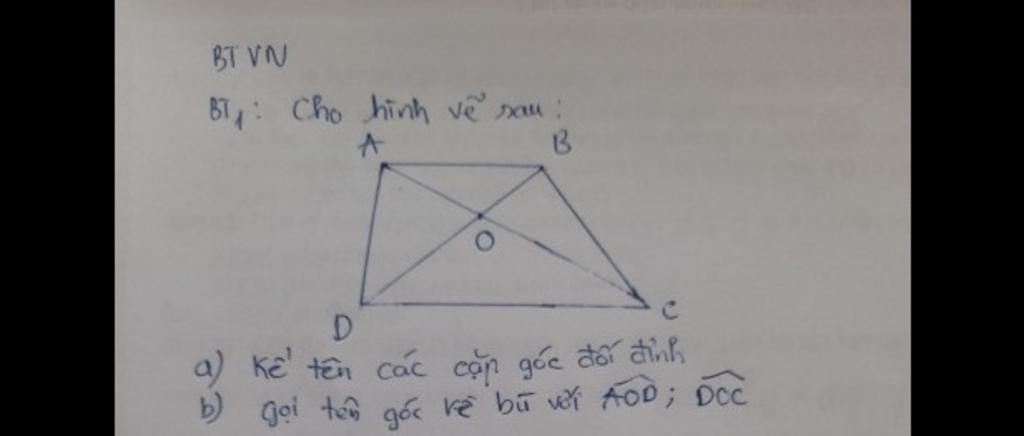 BTVN
BT1: Cho hình vẽ sau:
A B
O
D C
a) Kể tên các cặp góc đối đỉnh
b) gọi tên góc kề bù với AOD; DOC